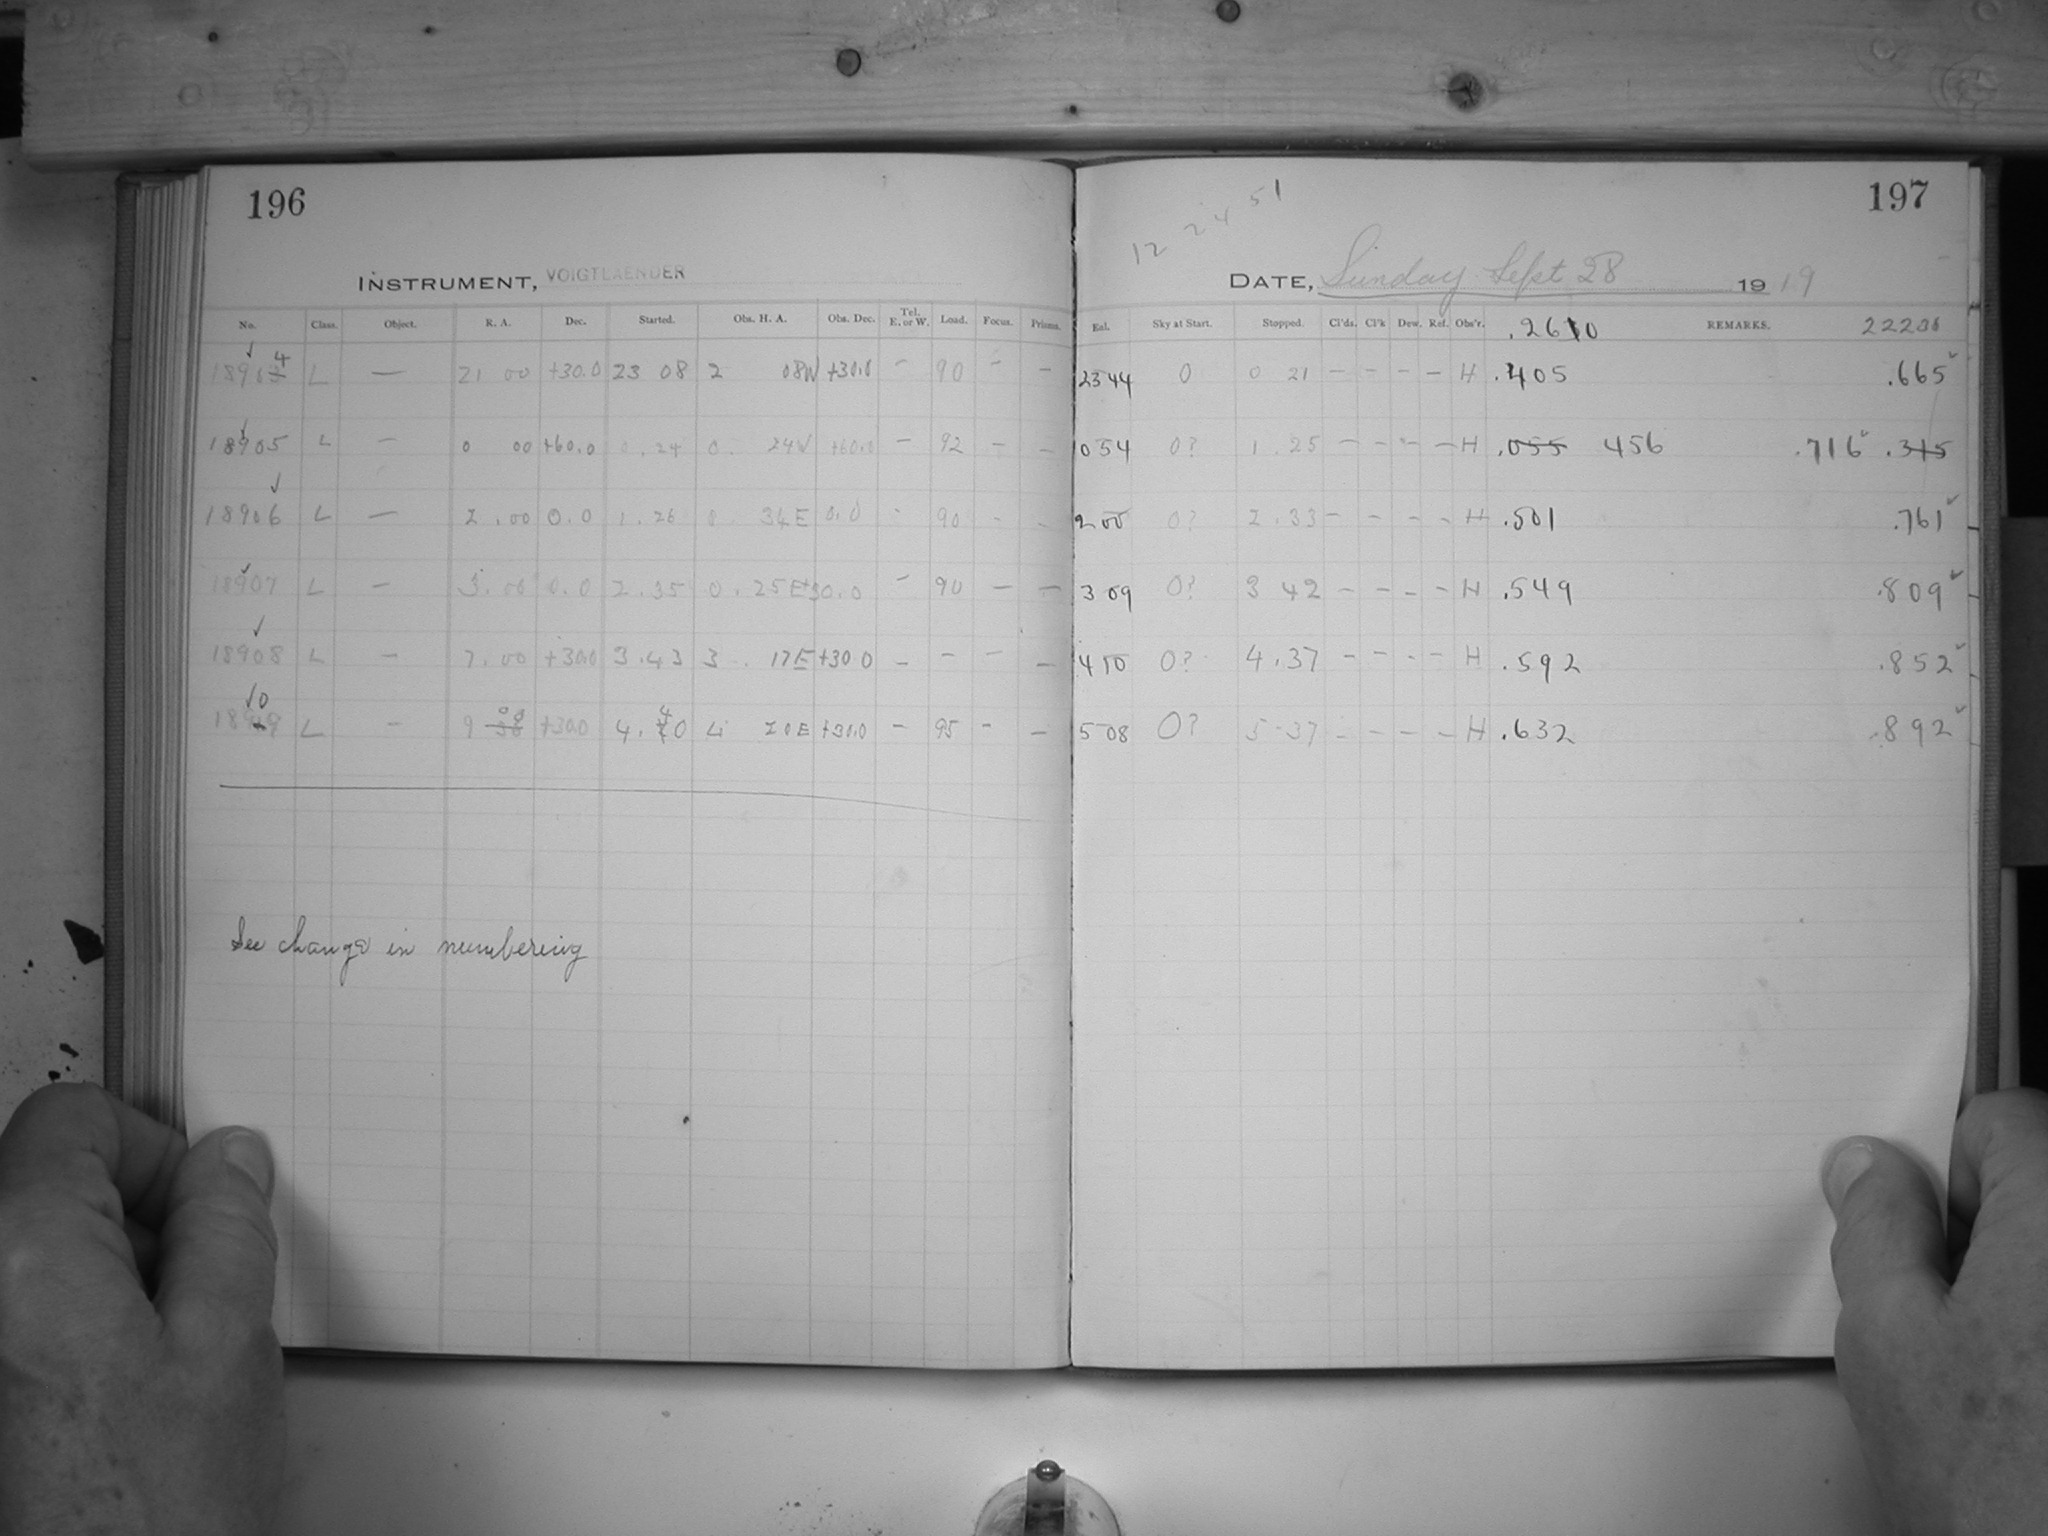 196
INSTRUMENT, VOIGTLAENDER
No. Class. Object. R. A. Dec. Started. Obs. H. A. Obs. Dec. Tel. E. or W. Load. Focus. Prisms.
4
L — 21 00 +30.0 23 08 2 08W +30.0 - 90 - -
18905 L - 0 00 +60.0 0.24 0. 24W +60.0 - 92 - -
18906 L - 2.00 0.0 1.26 0. 34E 0.0 - 90 - -
18907 L - 3.00 0.0 2.35 0.25E +30.0 - 90 - -
18908 L - 7.00 +30.0 3.43 3 17E +30 0 - - - -
L - 9 +30.0 4.40 4 20E +30.0 - 95 - -
See change in numbering
12 24 51
197
DATE, Sunday Sept 28 1919
Eal. Sky at Start. Stopped. Cl'ds. Cl'k Dew. Ref. Obs'r. .2610 REMARKS.
2344 0 0 21 - - - - H .405 .665
054 0? 1.25 - - - - H .055 456 .716 .315
200 0? 2.33 - - - - H .501 .761
309 0? 3 42 - - - - H .549 .809
410 0? 4.37 - - - - H .592 .852
508 0? 5-37 - - - - H .632 .892